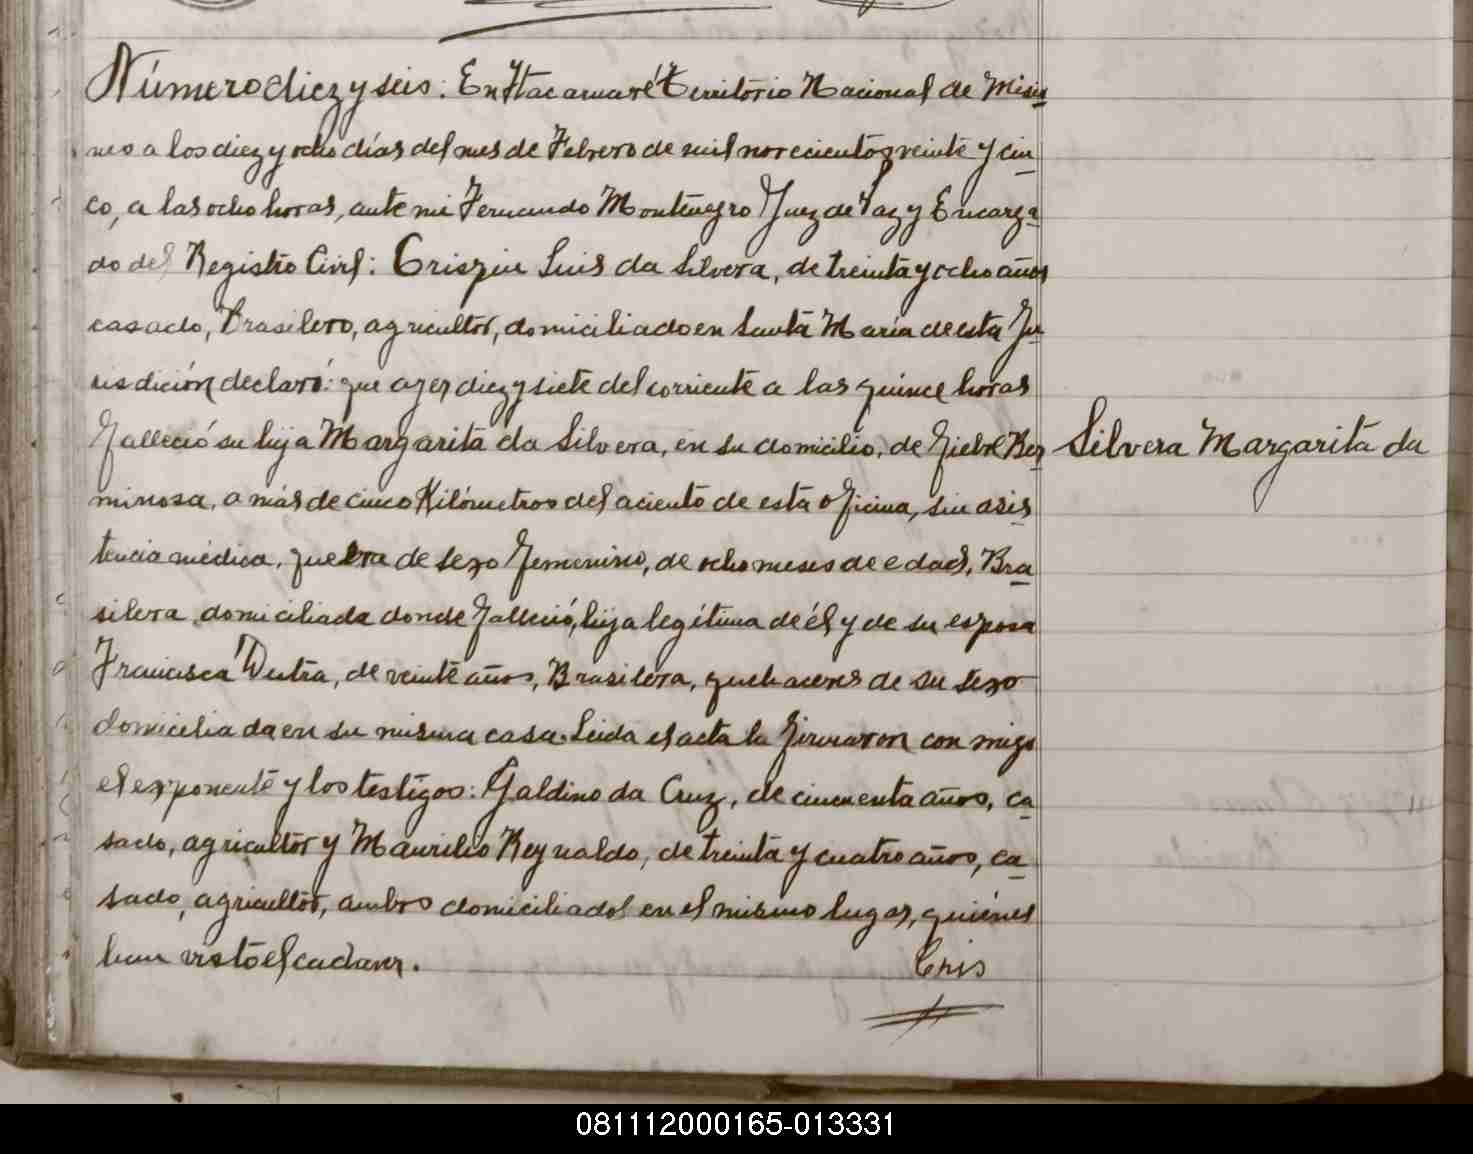 Número diez y seis: En Itacaruaré Territorio Nacional de Misio
nes a los diez y ocho días del mes de Febrero de mil novecientos veinte y cin
co, a las ocho horas, ante mi Fernando Montenegro Juez de Paz y Encarga
do del Registro Civil: Crispin Luis da Silvera, de treinta y ocho años
casado, Brasilero, agricultor, domiciliado en Santa María de esta Ju
risdición declaró: que ayer diez y siete del corriente a las quince horas
falleció su hija Margarita da Silvera, en su domicilio, de fiebre Ber
Silvera Margarita da
minosa, a más de cinco Kilómetros del aciento de esta oficina, sin asis
tencia médica, que era de sexo femenino, de ocho meses de edad, Bra
silera domiciliada donde falleció, hija legítima de él y de su esposa
Francisca Dutra, de veinte años, Brasilera, quehaceres de su sexo
domiciliada en su misma casa. Leida el acta la firmaron con migo
el exponente y los testigos: Galdino da Cruz, de cincuenta años, ca
sado, agricultor y Maurilio Reynaldo, de treinta y cuatro años, ca
sado, agricultor, ambos domiciliados en el mismo lugar, quiénes
han visto el cadaver. Cris
081112000165-013331